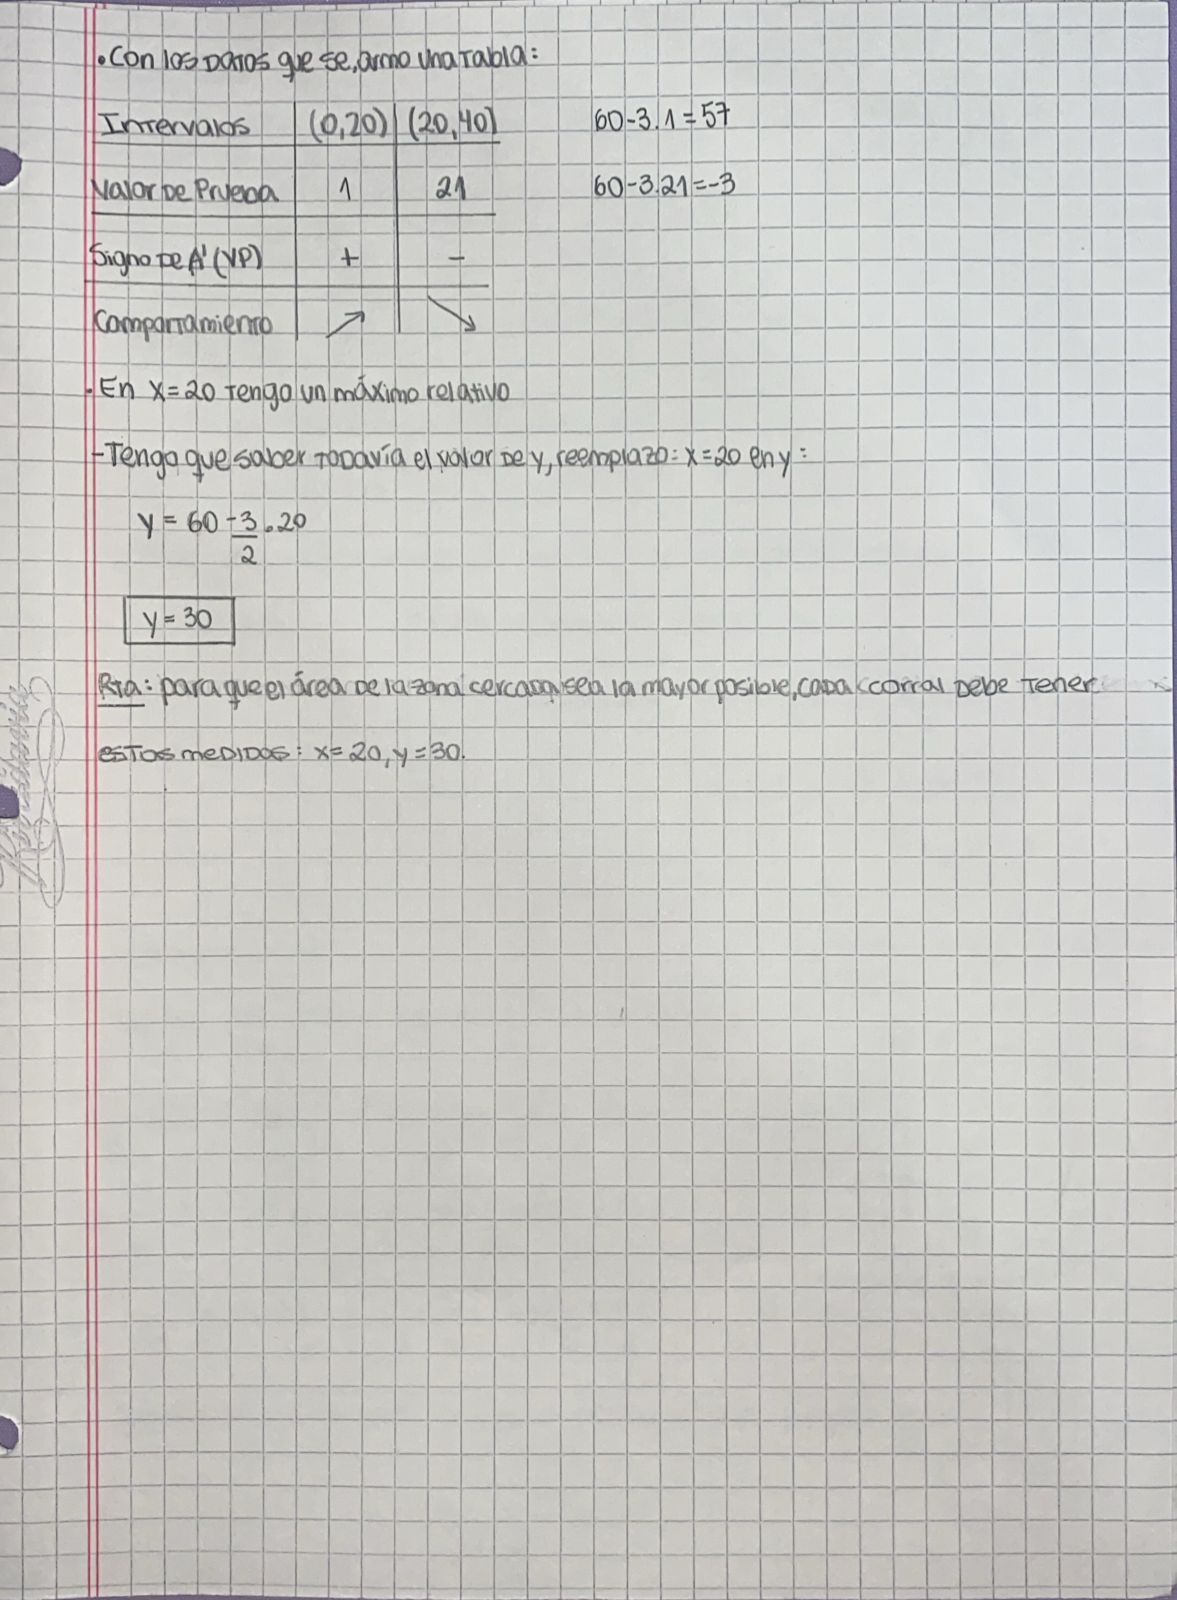 • Con los Datos que se, armo una tabla:
Intervalos (0,20) (20,40) 60-3.1=57
Valor De Prueba 1 21 60-3.21=-3
Signo De A' (VP) + -
Comportamiento ↗ ↘
• En x=20 Tengo un máximo relativo
- Tengo que saber Todavía el valor De y, reemplazo: x=20 en y:
y = 60 - 3/2 . 20
y = 30
Rta: para que el área De la zona cercada sea la mayor posible, cada corral Debe Tener
estas meDiDas: x=20, y=30.